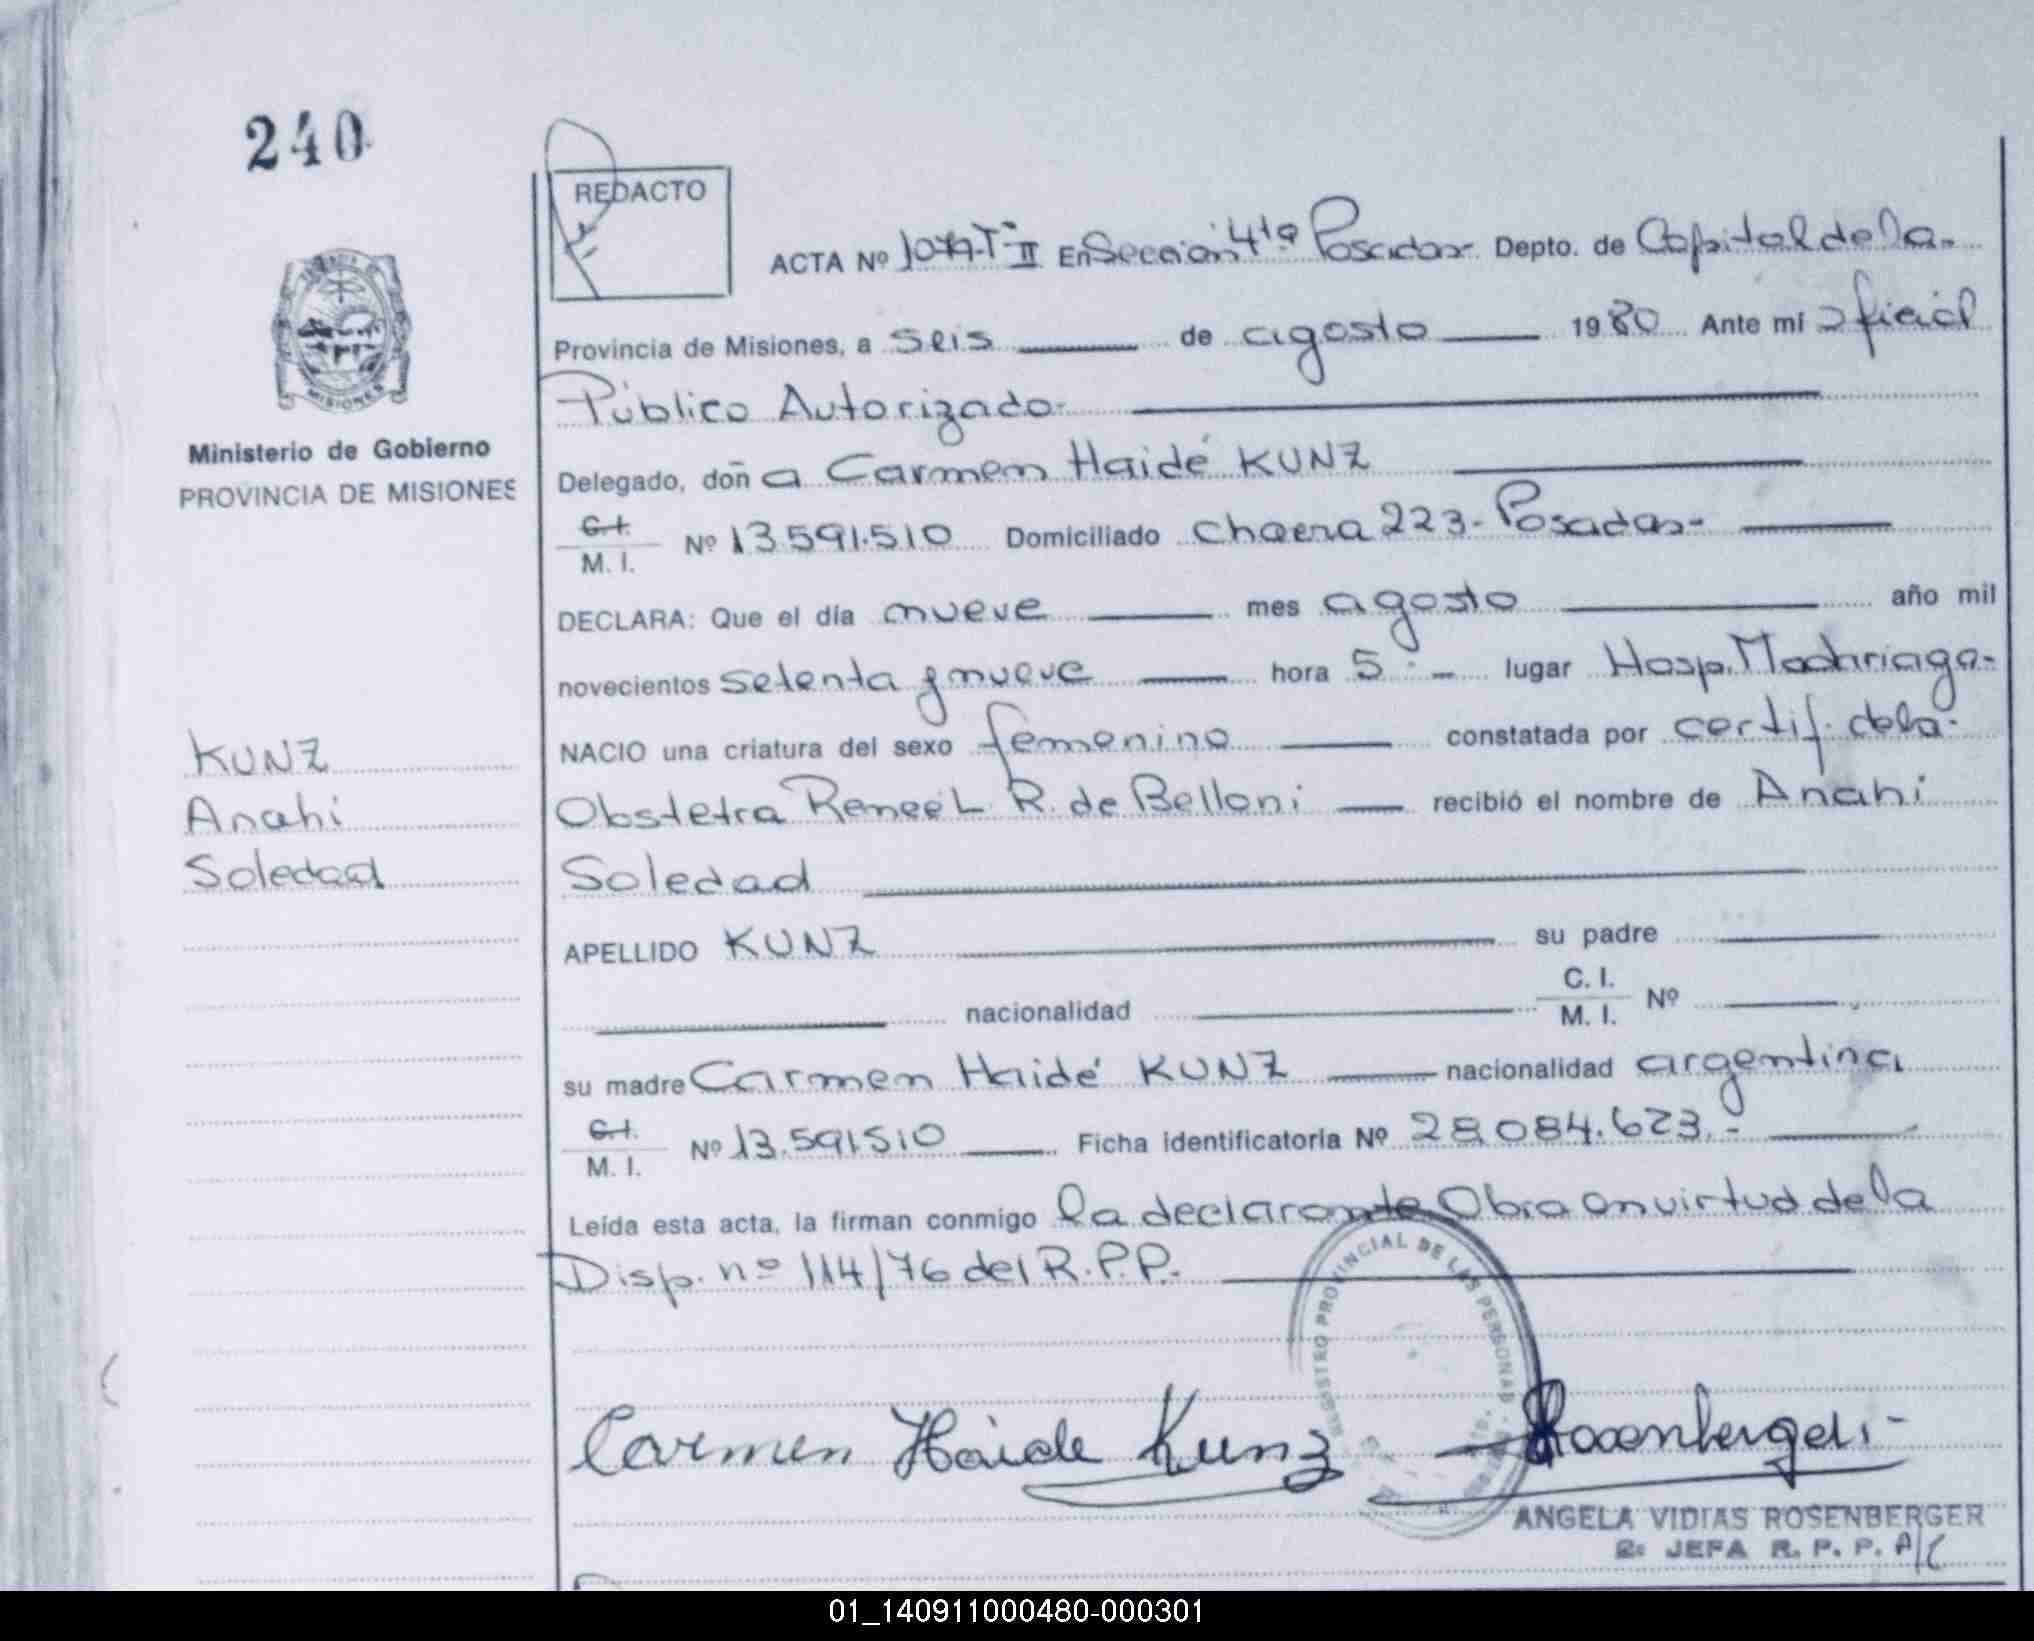 240
REDACTO
ACTA Nº 1079-Tº II En Sección 4ta Posadas- Depto. de Capital de la-
Provincia de Misiones, a seis de agosto 1980 Ante mí Oficial
Público Autorizado-
Ministerio de Gobierno
PROVINCIA DE MISIONES
MISIONES
Delegado, doña Carmen Haidé KUNZ
C.I.
M. I. Nº 13.591.510 Domiciliado chacra 223- Posadas-
DECLARA: Que el día nueve mes agosto año mil
novecientos setenta y nueve hora 5:- lugar Hosp. Madariaga-
NACIO una criatura del sexo femenino constatada por certif. de la-
Obstetra Reneé L. R. de Belloni recibió el nombre de Anahi
Soledad
KUNZ
Anahi
Soledad
APELLIDO KUNZ su padre
nacionalidad C. I.
M. I. Nº
su madre Carmen Haidé KUNZ nacionalidad argentina
C.I.
M. I. Nº 13.591510 Ficha identificatoria Nº 28.084.623.-
Leída esta acta, la firman conmigo la declarante Obra en virtud de la
Disp. nº 114/76 del R.P.P.-
REGISTRO PROVINCIAL DE LAS PERSONAS
Carmen Haide Kunz
ANGELA VIDIAS ROSENBERGER
2º JEFA R. P. P. A/C
01_140911000480-000301